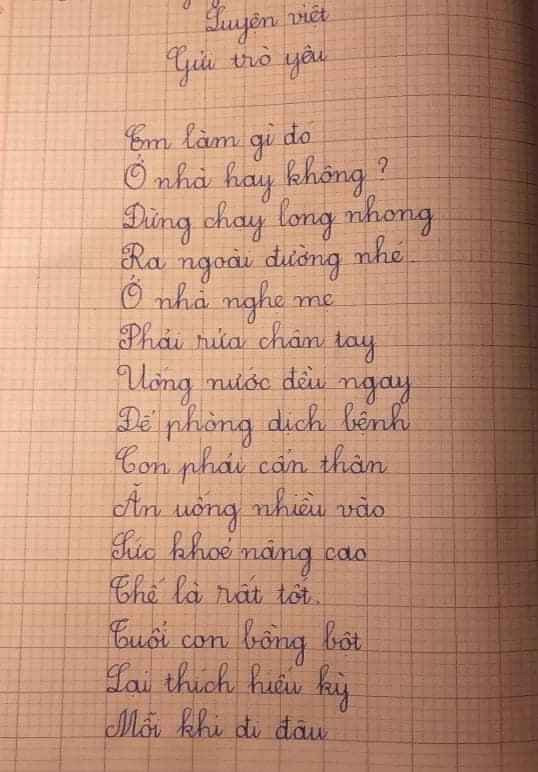 Luyện viết
Gửi trò yêu
Em làm gì đó
Ở nhà hay không?
Đừng chạy long nhong
Ra ngoài đường nhé.
Ở nhà nghe mẹ
Phải rửa chân tay
Uống nước đều ngay
Để phòng dịch bệnh
Con phải cẩn thận
Ăn uống nhiều vào
Sức khoẻ nâng cao
Thế là rất tốt.
Tuổi con bồng bột
Lại thích hiếu kỳ
Mỗi khi đi đâu